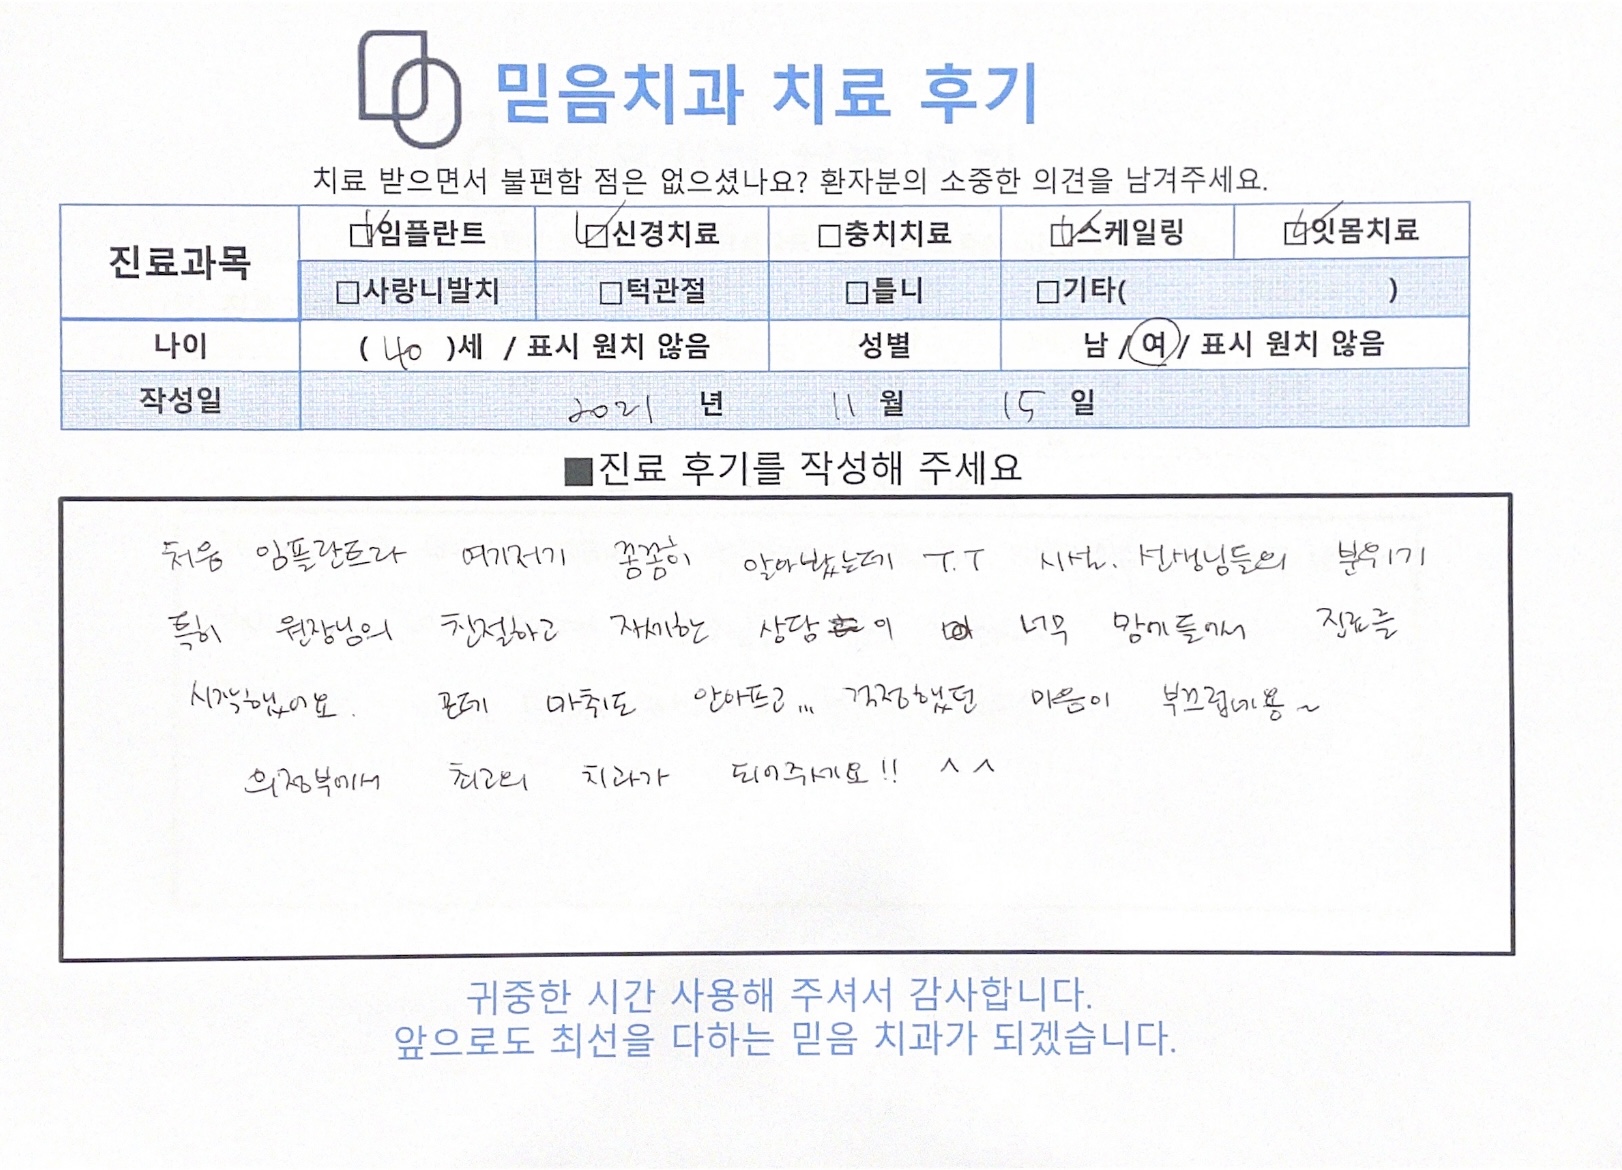 믿음치과 치료 후기
치료 받으면서 불편함 점은 없으셨나요? 환자분의 소중한 의견을 남겨주세요.
진료과목 □임플란트 □신경치료 □충치치료 □스케일링 □잇몸치료
□사랑니발치 □턱관절 □틀니 □기타( )
나이 ( 40 )세 / 표시 원치 않음 성별 남 / 여 / 표시 원치 않음
작성일 2021 년 11 월 15 일
■진료 후기를 작성해 주세요
처음 임플란트라 여기저기 꼼꼼히 알아봤는데 T.T 시설. 선생님들의 분위기
특히 원장님의 친절하고 자세한 상담이 너무 맘에들어서 진료를
시작했어요. 근데 마취도 안아프고,,, 걱정했던 마음이 부끄럽네용~
의정부에서 최고의 치과가 되어주세요!! ^^
귀중한 시간 사용해 주셔서 감사합니다.
앞으로도 최선을 다하는 믿음 치과가 되겠습니다.